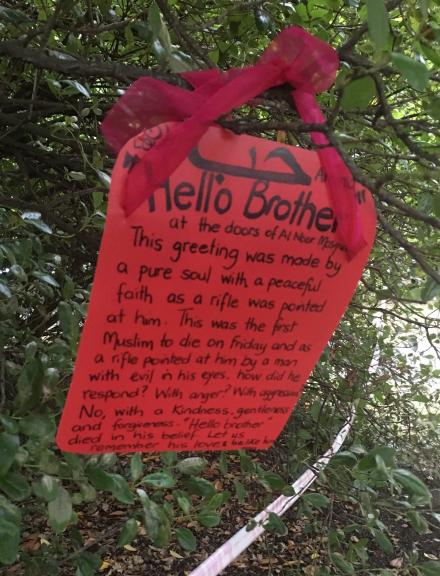 حب
Hello Brother
at the doors of Al Noor Mosque
This greeting was made by
a pure soul with a peaceful
faith as a rifle was pointed
at him. This was the first
Muslim to die on Friday and as
a rifle pointed at him by a man
with evil in his eyes. how did he
respond? With anger? With aggression
No, with a Kindness, gentleness
and forgiveness. "Hello brother"
died in his belief. Let us
remember his love &